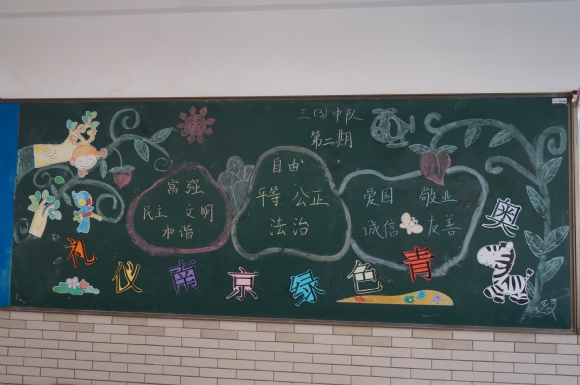 三(3)中队
第二期
富强
民主 文明
和谐
自由
平等 公正
法治
爱国 敬业
诚信 友善
礼仪南京绿色青奥